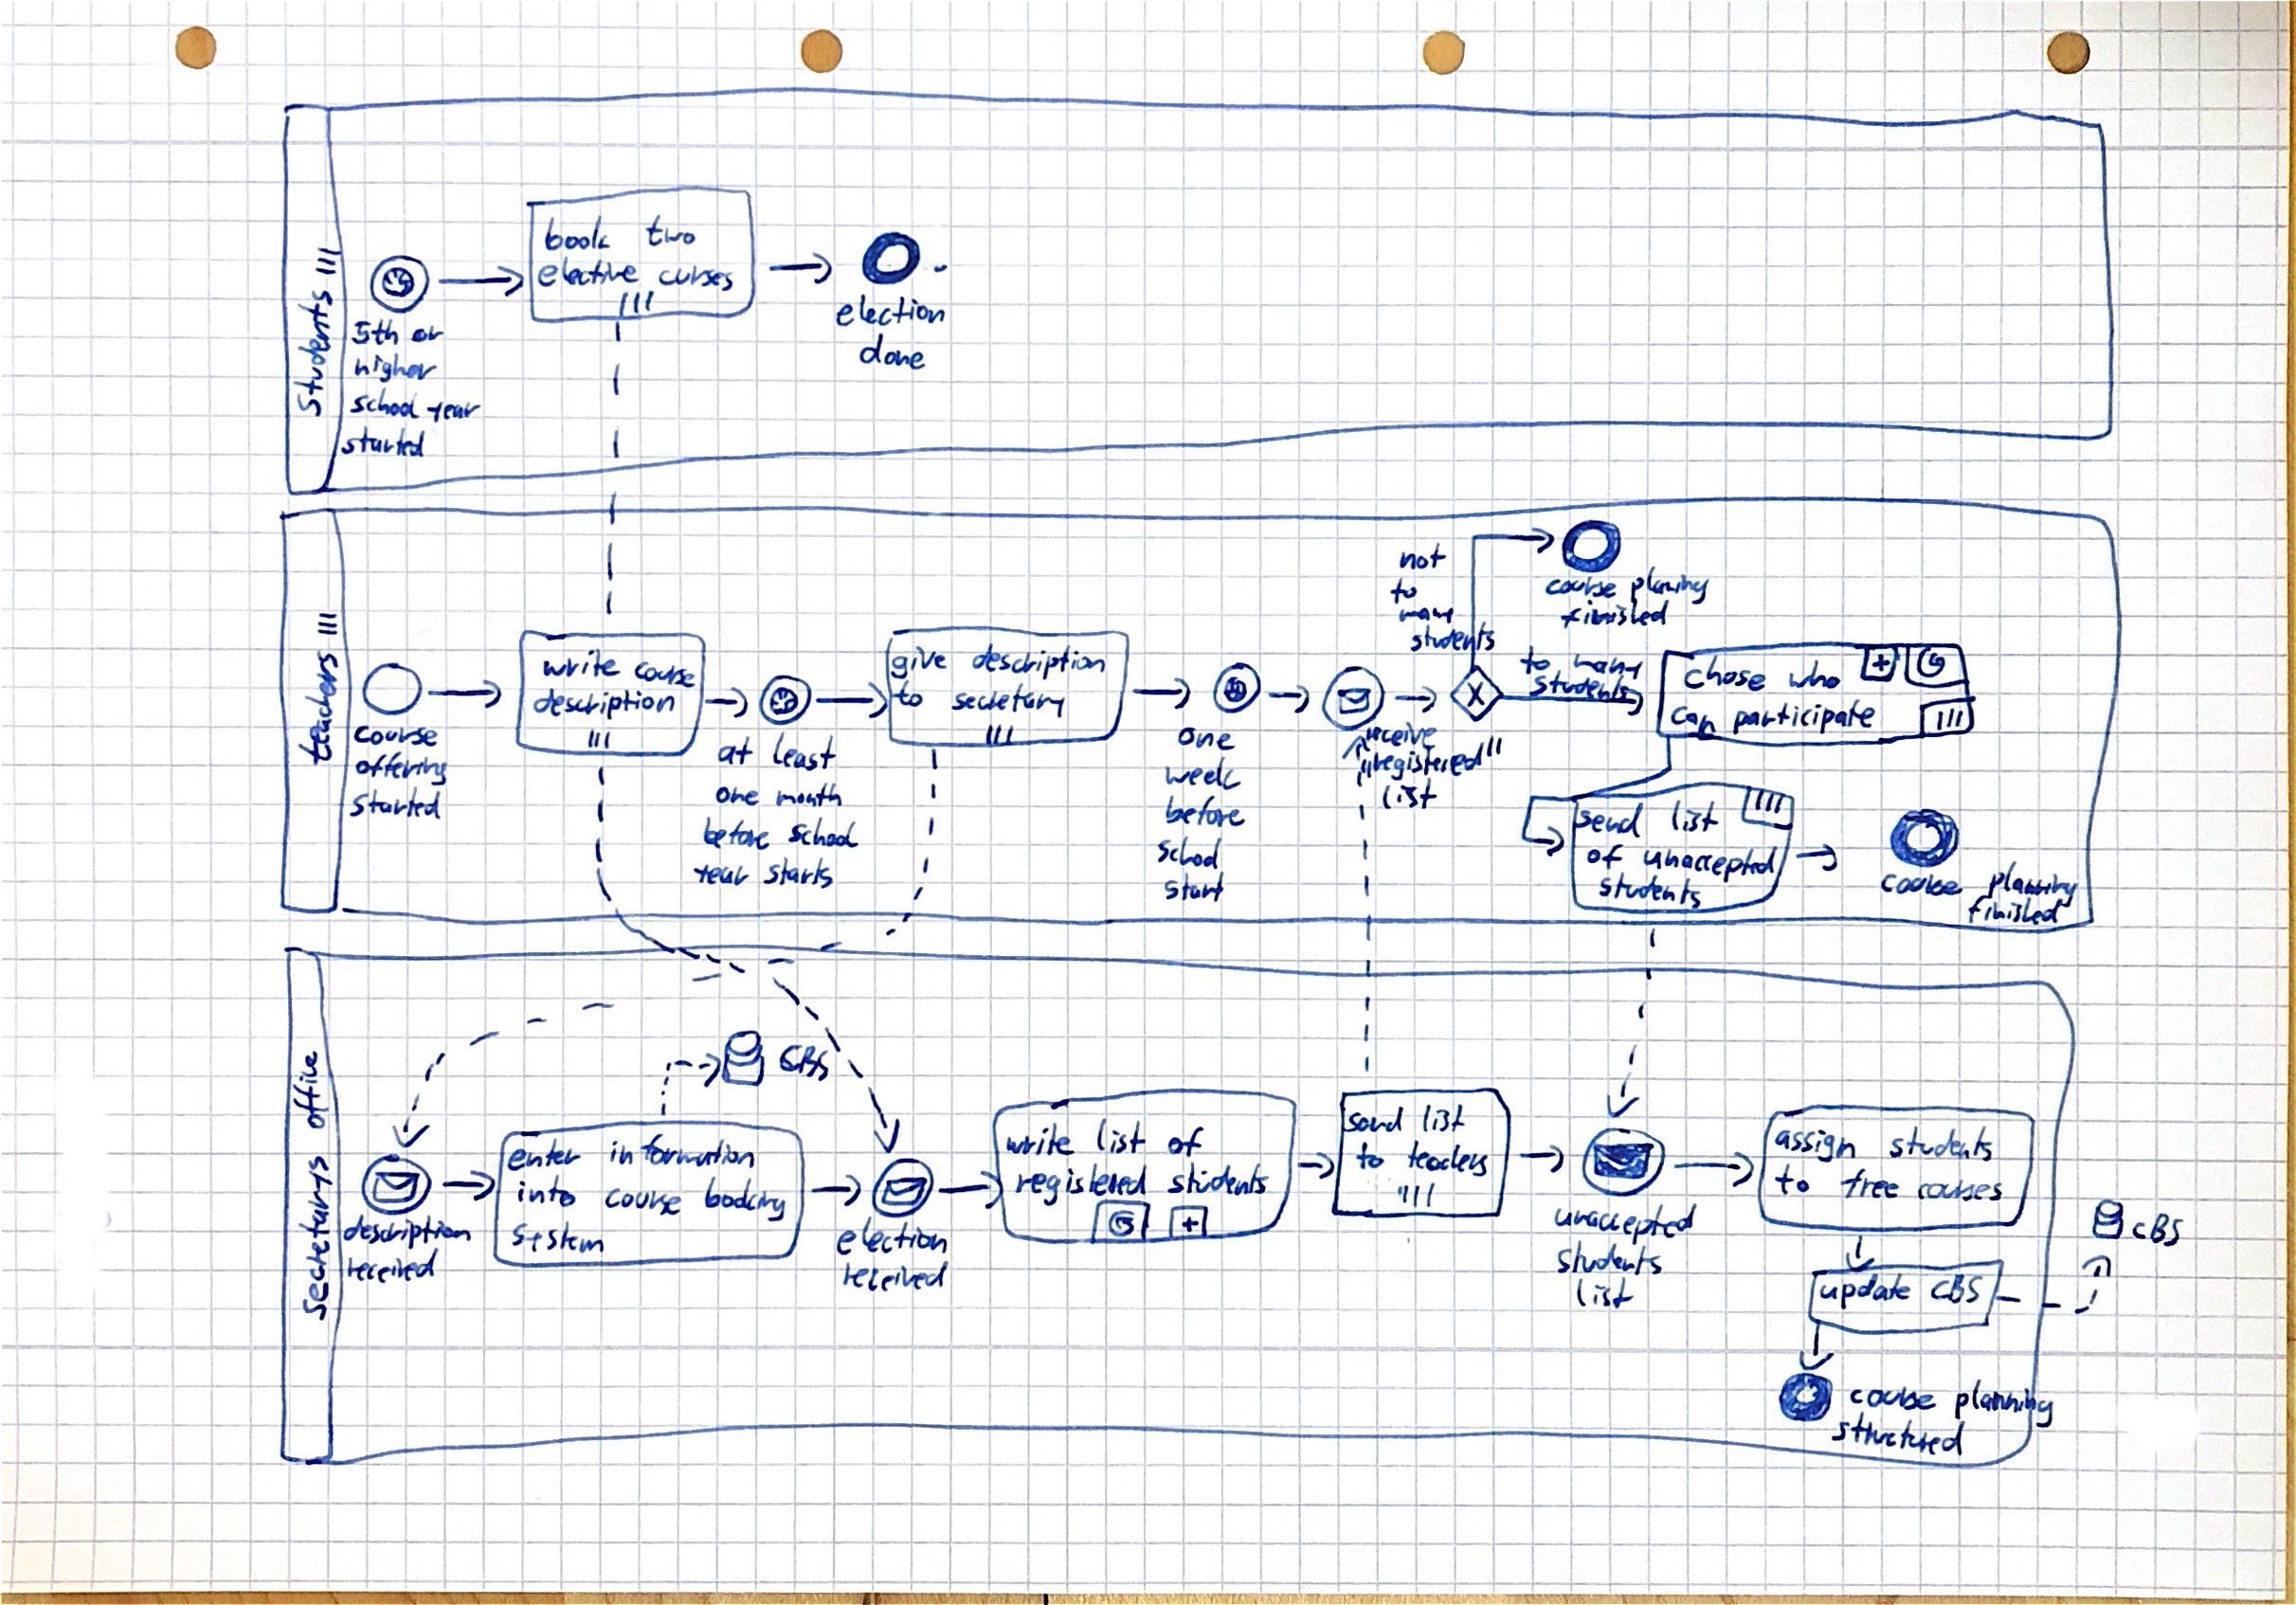 Students III
book two
elective curses
III
5th or
higher
school year
started
election
done
teachers III
course
offering
started
write course
description
III
at least
one month
before school
year starts
give description
to secretary
III
one
week
before
school
start
receive
"registered"
list
not
to
many
students
X
to many
students
course planing
finished
chose who
can participate
+
III
send list
of unaccepted
students
III
course planning
finished
Secretarys office
description
received
enter information
into course booking
system
CBS
election
received
write list of
registered students
+
send list
to teachers
III
unaccepted
students
list
assign students
to free courses
update CBS
CBS
course planning
structured